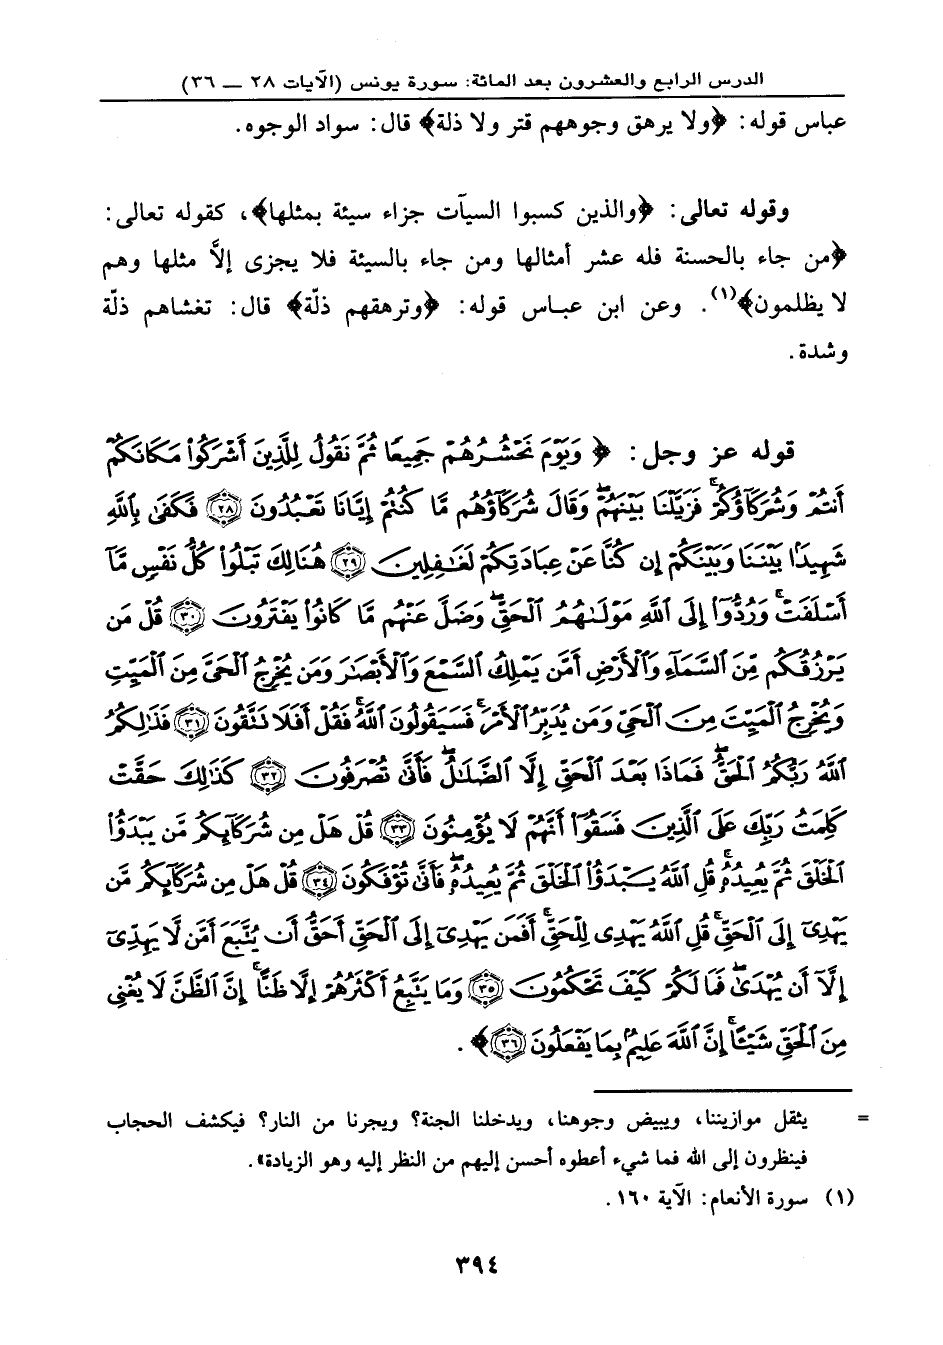 الدرس الرابع والعشرون بعد المائة: سورة يونس (الآيات ٢٨ ــ ٣٦)
عباس قوله: ﴿ولا يرهق وجوههم قتر ولا ذلة﴾ قال: سواد الوجوه.
وقوله تعالى: ﴿والذين كسبوا السيآت جزاء سيئة بمثلها﴾، كقوله تعالى:
﴿من جاء بالحسنة فله عشر أمثالها ومن جاء بالسيئة فلا يجزى إلاَّ مثلها وهم
لا يظلمون﴾(١). وعن ابن عباس قوله: ﴿وترهقهم ذلّة﴾ قال: تغشاهم ذلّة
وشدة.
قوله عز وجل: ﴿ وَيَوْمَ نَحْشُرُهُمْ جَمِيعًا ثُمَّ نَقُولُ لِلَّذِينَ أَشْرَكُوا۟ مَكَانَكُمْ
أَنتُمْ وَشُرَكَآؤُكُمْ ۚ فَزَيَّلْنَا بَيْنَهُمْ ۖ وَقَالَ شُرَكَآؤُهُم مَّا كُنتُمْ إِيَّانَا تَعْبُدُونَ ۝٢٨ فَكَفَىٰ بِٱللَّهِ
شَهِيدًۢا بَيْنَنَا وَبَيْنَكُمْ إِن كُنَّا عَنْ عِبَادَتِكُمْ لَغَـٰفِلِينَ ۝٢٩ هُنَالِكَ تَبْلُوا۟ كُلُّ نَفْسٍ مَّآ
أَسْلَفَتْ ۚ وَرُدُّوٓا۟ إِلَى ٱللَّهِ مَوْلَىٰهُمُ ٱلْحَقِّ ۖ وَضَلَّ عَنْهُم مَّا كَانُوا۟ يَفْتَرُونَ ۝٣٠ قُلْ مَن
يَرْزُقُكُم مِّنَ ٱلسَّمَآءِ وَٱلْأَرْضِ أَمَّن يَمْلِكُ ٱلسَّمْعَ وَٱلْأَبْصَـٰرَ وَمَن يُخْرِجُ ٱلْحَىَّ مِنَ ٱلْمَيِّتِ
وَيُخْرِجُ ٱلْمَيِّتَ مِنَ ٱلْحَىِّ وَمَن يُدَبِّرُ ٱلْأَمْرَ ۚ فَسَيَقُولُونَ ٱللَّهُ ۚ فَقُلْ أَفَلَا تَتَّقُونَ ۝٣١ فَذَٰلِكُمُ
ٱللَّهُ رَبُّكُمُ ٱلْحَقُّ ۖ فَمَاذَا بَعْدَ ٱلْحَقِّ إِلَّا ٱلضَّلَـٰلُ ۖ فَأَنَّىٰ تُصْرَفُونَ ۝٣٢ كَذَٰلِكَ حَقَّتْ
كَلِمَتُ رَبِّكَ عَلَى ٱلَّذِينَ فَسَقُوٓا۟ أَنَّهُمْ لَا يُؤْمِنُونَ ۝٣٣ قُلْ هَلْ مِن شُرَكَآئِكُم مَّن يَبْدَؤُا۟
ٱلْخَلْقَ ثُمَّ يُعِيدُهُۥ ۚ قُلِ ٱللَّهُ يَبْدَؤُا۟ ٱلْخَلْقَ ثُمَّ يُعِيدُهُۥ ۖ فَأَنَّىٰ تُؤْفَكُونَ ۝٣٤ قُلْ هَلْ مِن شُرَكَآئِكُم مَّن
يَهْدِىٓ إِلَى ٱلْحَقِّ ۚ قُلِ ٱللَّهُ يَهْدِى لِلْحَقِّ ۗ أَفَمَن يَهْدِىٓ إِلَى ٱلْحَقِّ أَحَقُّ أَن يُتَّبَعَ أَمَّن لَّا يَهِدِّىٓ
إِلَّآ أَن يُهْدَىٰ ۖ فَمَا لَكُمْ كَيْفَ تَحْكُمُونَ ۝٣٥ وَمَا يَتَّبِعُ أَكْثَرُهُمْ إِلَّا ظَنًّا ۚ إِنَّ ٱلظَّنَّ لَا يُغْنِى
مِنَ ٱلْحَقِّ شَيْـًٔا ۚ إِنَّ ٱللَّهَ عَلِيمٌۢ بِمَا يَفْعَلُونَ ۝٣٦﴾.
= يثقل موازيننا، ويبيض وجوهنا، ويدخلنا الجنة؟ ويجرنا من النار؟ فيكشف الحجاب
فينظرون إلى الله فما شيء أعطوه أحسن إليهم من النظر إليه وهو الزيادة».
(١) سورة الأنعام: الآية ١٦٠.
٣٩٤